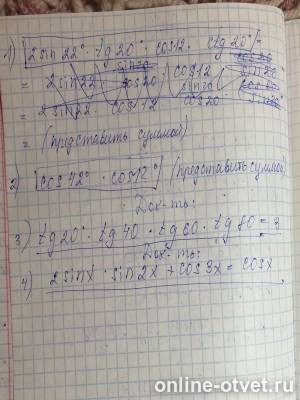 1) 2 sin 22° · tg 20° · cos 12 · ctg 20° =
= 2 sin 22 cos 12
= 2 sin 22 · cos 12
= (представить суммой)
2) cos 42° · cos 12° (представить суммой)
Док-ть:
3) tg 20° · tg 40 · tg 60 · tg 80 = 3
Док-ть:
4) 2 sin x · sin 2x + cos 3x = cos x
online-otvet.ru